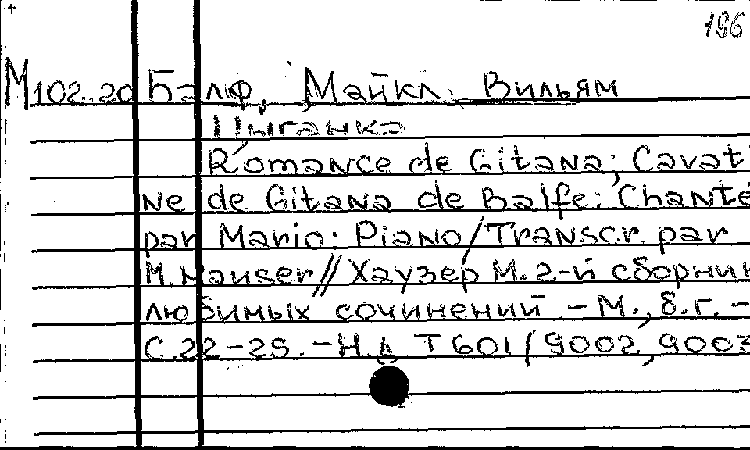 196
М102.20 Балф, Майкл Вильям
Цыганка
Romance de Gitana; Cavati
ne de Gitana de Balfe: Chante
par Mario: Piano/Transcr. par
M. Hauser//Хаузер М. 2-й сборник
любимых сочинений - М., б.г. -
С.22-25. - Н.д. Т601/9002, 9003